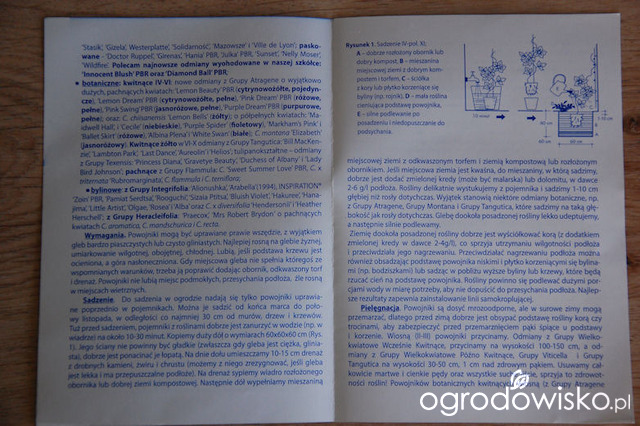 'Stasik', 'Gizela', 'Westerplatte', 'Solidarność', 'Mazowsze' i 'Ville de Lyon'; pasko-
wane - 'Doctor Ruppel', 'Girenas', 'Hania' PBR, 'Julka' PBR, 'Sunset', 'Nelly Moser',
'Wildfire'. Polecam najnowsze odmiany wyhodowane w naszej szkółce:
'Innocent Blush' PBR oraz 'Diamond Ball' PBR;
• botaniczne: kwitnące IV-VI: nowe odmiany z Grupy Atragene o wyjątkowo
dużych, pachnących kwiatach: 'Lemon Beauty' PBR (cytrynowożółte, pojedyn-
cze), 'Lemon Dream' PBR (cytrynowożółte, pełne), 'Pink Dream' PBR (różowe,
pełne), 'Pink Swing' PBR (jasnoróżowe, pełne), 'Purple Dream' PBR (purpurowe,
pełne); oraz: C. chiisanensis 'Lemon Bells' (żółty); o półpełnych kwiatach: 'Ma-
idwell Hall' i 'Cecile' (niebieskie), 'Purple Spider' (fioletowy), 'Markham's Pink' i
'Ballet Skirt' (różowe), 'Albina Plena' i 'White Swan' (białe); C. montana 'Elizabeth'
(jasnoróżowy). Kwitnące żółto w VI-X odmiany z Grupy Tangutica: 'Bill MacKen-
zie', 'Lambton Park', 'Last Dance', 'Aureolin' i 'Helios'; tulipanokształtne – odmiany
z Grupy Texensis: 'Princess Diana', 'Gravetye Beauty', 'Duchess of Albany' i 'Lady
Bird Johnson'; pachnące z Grupy Flammula: C. 'Sweet Summer Love' PBR, C. x
internata 'Rubromarginata', C. flammula i C. terniflora.
• bylinowe: z Grupy Integrifolia: 'Alionushka', 'Arabella'(1994), INSPIRATION®
'Zoin' PBR, 'Pamiat Serdtsa', 'Rooguchi', 'Sizaia Ptitsa', 'Blush Violet', 'Hakuree', 'Hana-
jima', 'Little Artist', 'Olgae', 'Rosea' i 'Alba' oraz C. x diversifolia 'Hendersonii' i 'Heather
Herschell'; z Grupy Heracleifolia: 'Praecox', 'Mrs Robert Brydon' o pachnących
kwiatach C. aromatica, C. mandschurica i C. recta.
Wymagania. Powojniki mogą być uprawiane prawie wszędzie, z wyjątkiem
gleb bardzo piaszczystych lub czysto gliniastych. Najlepiej rosną na glebie żyznej,
umiarkowanie wilgotnej, obojętnej, chłodnej. Lubią, jeśli podstawa krzewu jest
ocieniona, a góra nasłoneczniona. Gdy miejscowa gleba nie spełnia któregoś ze
wspomnianych warunków, trzeba ją poprawić dodając obornik, odkwaszony torf
i drenaż. Powojniki nie lubią miejsc podmokłych, przesychania podłoża. Źle rosną
w miejscach wietrznych.
Sadzenie. Do sadzenia w ogrodzie nadają się tylko powojniki uprawia-
ne poprzednio w pojemnikach. Można je sadzić od końca marca do poło-
wy listopada, w odległości co najmniej 30 cm od murów, drzew i krzewów.
Tuż przed sadzeniem, pojemniki z roślinami dobrze jest zanurzyć w wodzie (np. w
wiadrze) na około 10-30 minut. Kopiemy duży dół o wymiarach 60x60x60 cm (Rys.
1). Jego ściany nie powinny być gładkie (zwłaszcza gdy gleba jest ciężka, glinia-
sta), dobrze jest ponacinać je łopatą. Na dnie dołu umieszczamy 10-15 cm drenaż
z drobnych kamieni, żwiru i chrustu (możemy z niego zrezygnować, jeśli gleba
jest lekka i ma przepuszczalne podłoże). Na drenaż sypiemy wiadro rozłożonego
obornika lub dobrej ziemi kompostowej. Następnie dół wypełniamy mieszaniną
Rysunek 1. Sadzenie IV-poł. XI;
A – dobrze rozłożony obornik lub
dobry kompost, B – mieszanina
miejscowej ziemi z dobrym kom-
postem i torfem, C – ściółka
z kory lub płytko korzeniące się
byliny (np. rojnik), D – mała roślina
cieniująca podstawę powojnika,
E – silne podlewanie po
posadzeniu i niedopuszczanie do
podsychania.
60 cm
60 cm
miejscowej ziemi z odkwaszonym torfem i ziemią kompostową lub rozłożonym
obornikiem. Jeśli miejscowa ziemia jest kwaśna, do mieszaniny, w którą sadzimy,
dobrze jest dodać zmielonej kredy (może być malarska) lub dolomitu, w dawce
2-6 g/l podłoża. Rośliny delikatnie wystukujemy z pojemnika i sadzimy 1-10 cm
głębiej niż rosły dotychczas. Wyjątek stanowią niektóre odmiany botaniczne, np.
z Grupy Atragene, Grupy Montana i Grupy Tangutica, które sadzimy na taką głę-
bokość jak rosły dotychczas. Glebę dookoła posadzonej rośliny lekko udeptujemy,
a następnie silnie podlewamy.
Ziemię dookoła posadzonej rośliny dobrze jest wyściółkować korą (z dodatkiem
zmielonej kredy w dawce 2-4g/l), co sprzyja utrzymaniu wilgotności podłoża
i przeciwdziała jego nagrzewaniu. Przeciwdziałać nagrzewaniu podłoża można
również obsadzając podstawę powojnika niskimi i płytko korzeniącymi się bylina-
mi (np. bodziszkami) lub sadząc w pobliżu wyższe byliny lub krzewy, które będą
rzucać cień na podstawę powojnika. Rośliny powinno się podlewać dużymi por-
cjami wody w miarę potrzeby, aby nie dopuścić do przesychania podłoża. Najlep-
sze rezultaty zapewnia zainstalowanie linii samokroplującej.
Pielęgnacja. Powojniki są dosyć mrozoodporne, ale w surowe zimy mogą
przemarzać, dlatego przed zimą dobrze jest obsypać podstawę rośliny korą czy
trocinami, aby zabezpieczyć przed przemarznięciem pąki śpiące u podstawy
i korzenie. Wiosną (II-III) powojniki przycinamy. Odmiany z Grupy Wielko-
kwiatowe Wcześnie Kwitnące, przycinamy na wysokości 100-150 cm, a od-
miany z Grupy Wielkokwiatowe Późno Kwitnące, Grupy Viticella i Grupy
Tangutica na wysokości 30-50 cm, 1 cm nad zdrowym pąkiem. Usuwamy cał-
kowicie martwe i cienkie pędy oraz wszystkie suche liście, sprzyja to zdrowot-
ności roślin! Powojników botanicznych kwitnących wiosną (z Grupy Atragene
ogrodowisko.pl